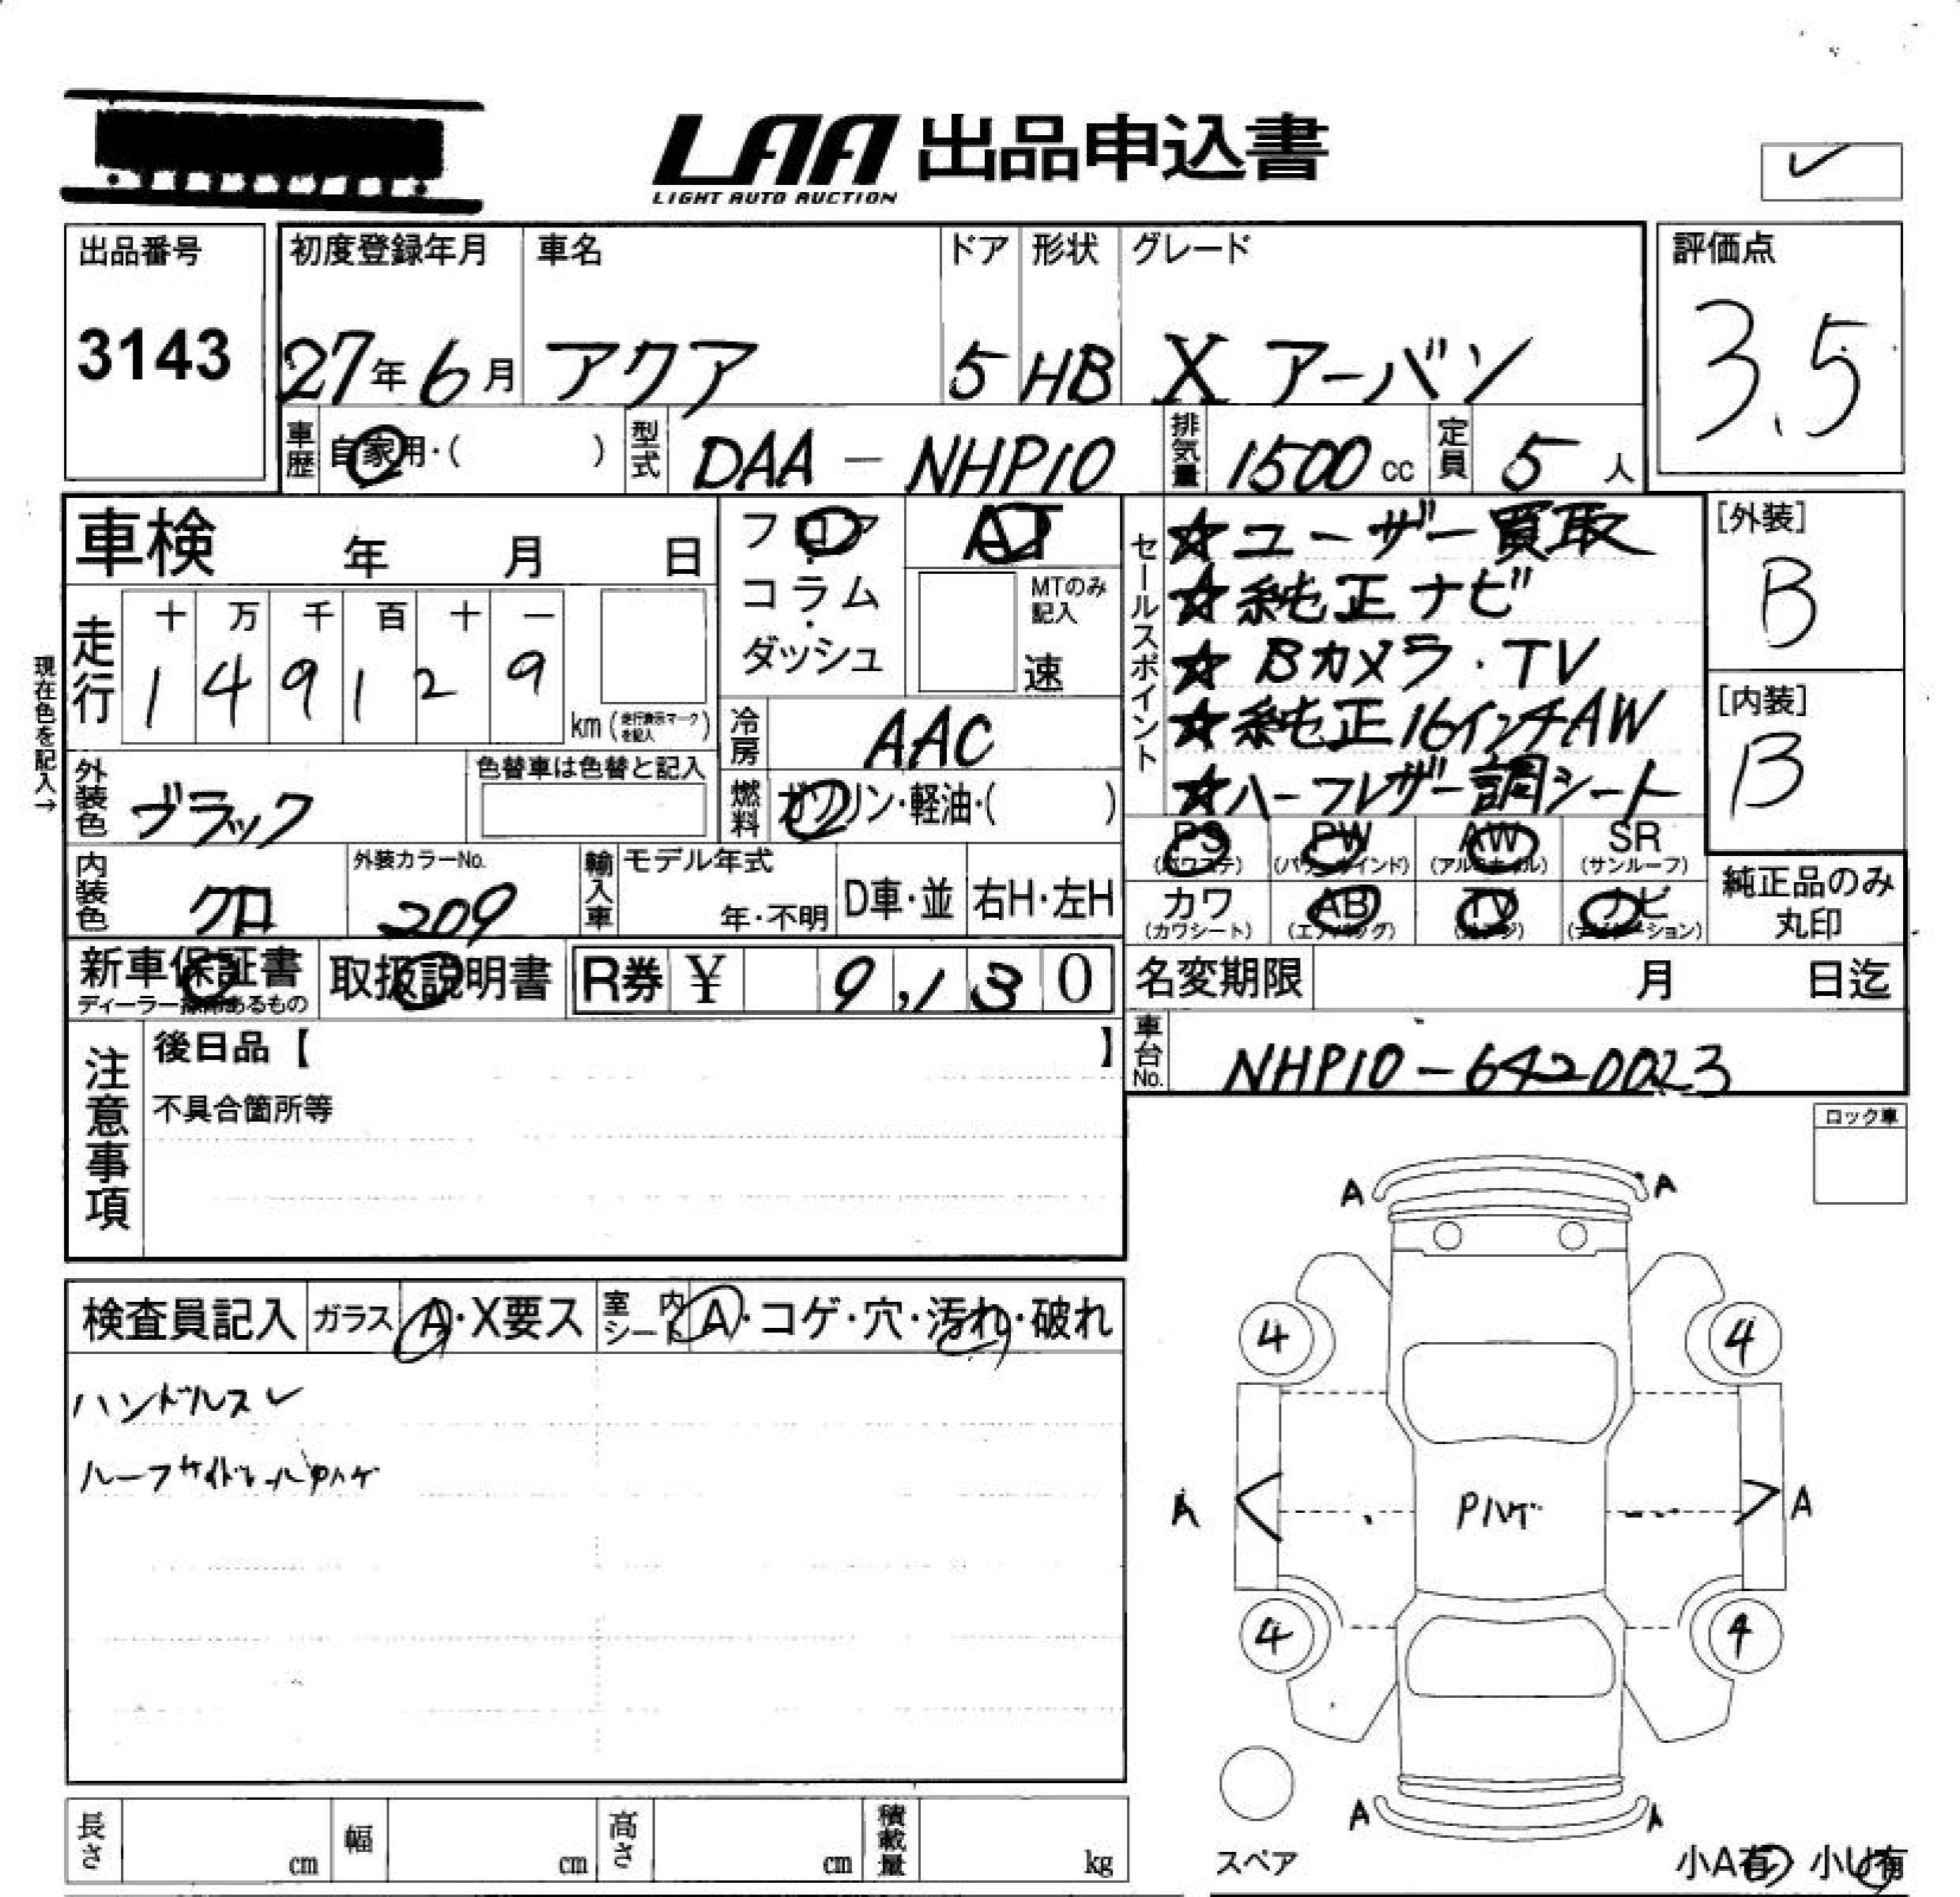 LAA 出品申込書
LIGHT AUTO AUCTION
出品番号
3143
初度登録年月
27年6月
車名
アクア
ドア
5
形状
HB
グレード
X アーバン
評価点
3.5
車歴
自家用・( )
型式
DAA-NHP10
排気量
1500cc
定員
5人
車検 年 月 日
フロア・コラム・ダッシュ
AT
MTのみ記入
速
セールスポイント
☆ユーザー買取
☆純正ナビ
☆Bカメラ・TV
☆純正16インチAW
☆ハーフレザー調シート
[外装]
B
[内装]
B
現在色を記入→
走行
十 万 千 百 十 一
1 4 9 1 2 9
km(走行表示マークを記入)
冷房
AAC
外装色
ブラック
色替車は色替と記入
燃料
ガソリン・軽油・( )
PS
(パワステ)
PW
(パワーウインド)
AW
(アルミホイル)
SR
(サンルーフ)
内装色
クロ
外装カラーNo.
209
輸入車
モデル年式
年・不明
D車・並
右H・左H
カワ
(カワシート)
AB
(エアバッグ)
TV
ナビ
(ナビゲーション)
純正品のみ
丸印
新車保証書
取扱説明書
R券 ¥ 9,130
名変期限 月 日迄
注意事項
後日品【 】
不具合箇所等
車台No.
NHP10-6420023
ロック車
検査員記入
ガラス
A・X要ス
室内シート
A・コゲ・穴・汚れ・破れ
ハンドルスレ
ルーフサイドモールPハゲ
A A
4 4
A Pハゲ A
4 4
A A
スペア
小A有 小U有
長さ cm
幅 cm
高さ cm
積載量 kg